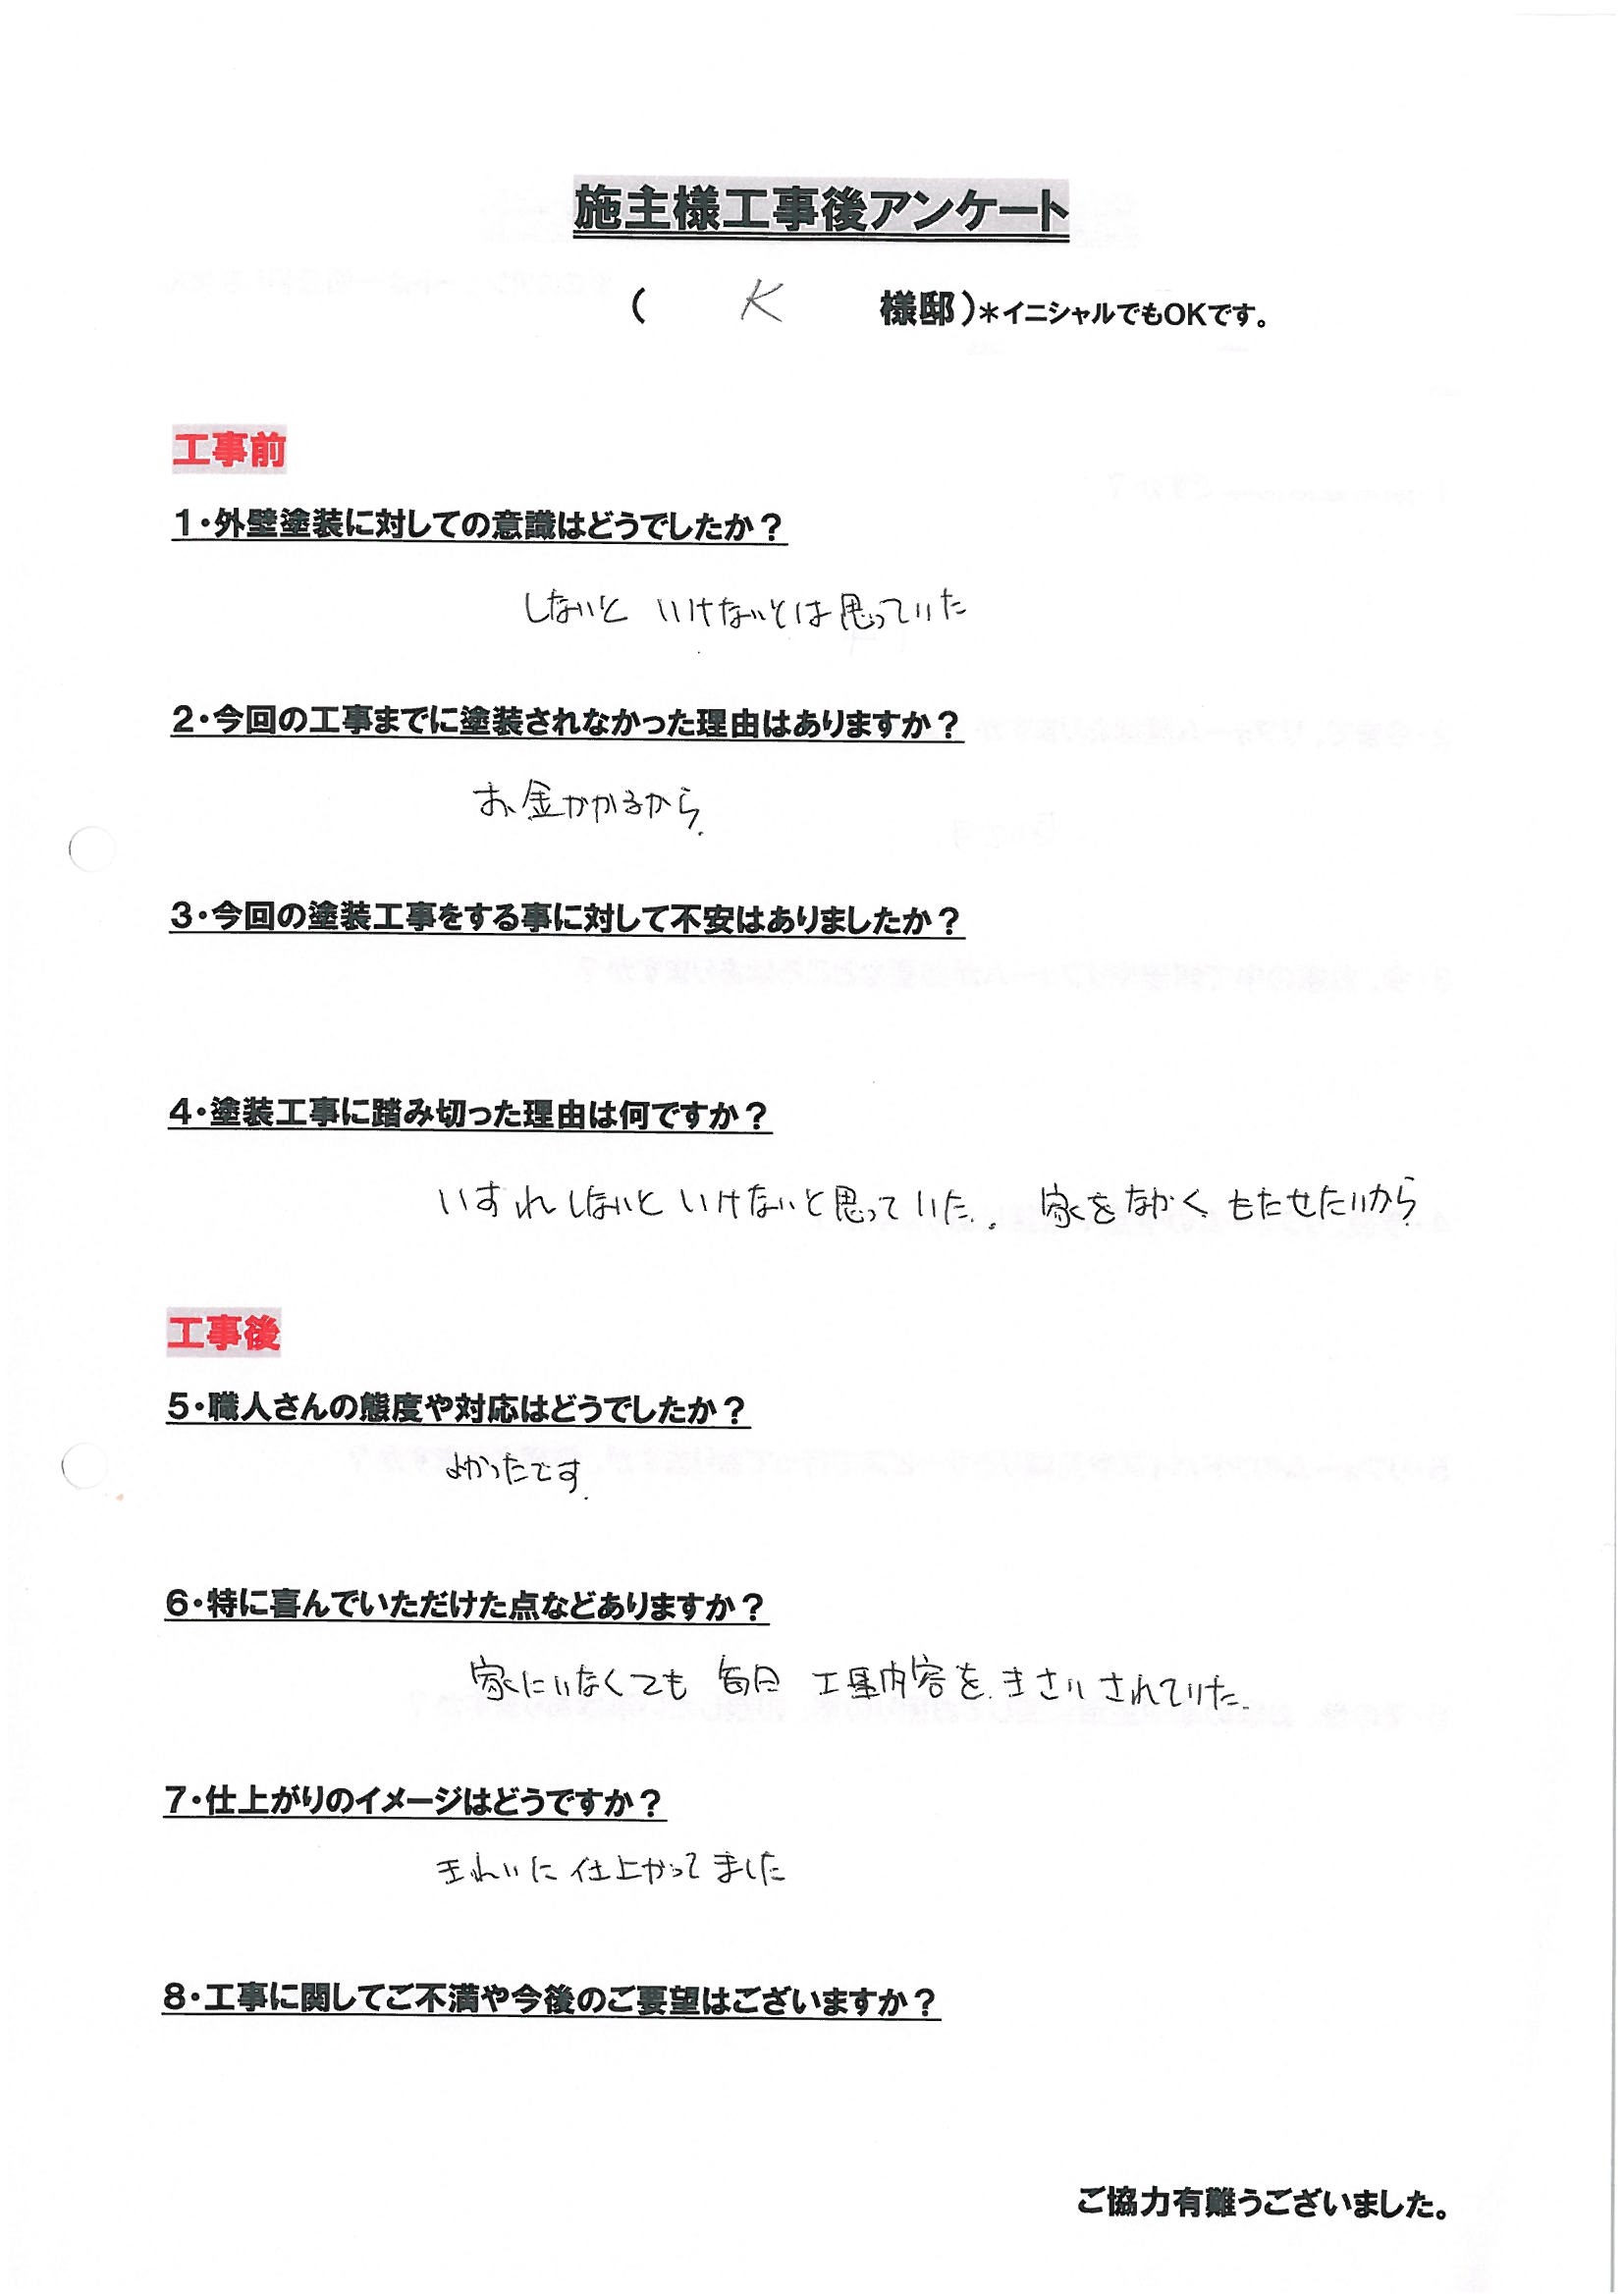 施主様工事後アンケート
( K 様邸)*イニシャルでもOKです。
工事前
1・外壁塗装に対しての意識はどうでしたか?
しないと いけないとは思っていた
2・今回の工事までに塗装されなかった理由はありますか?
お金かかるから.
3・今回の塗装工事をする事に対して不安はありましたか?
4・塗装工事に踏み切った理由は何ですか?
いすれしないと いけないと思っていた. 家をなかく もたせたいから
工事後
5・職人さんの態度や対応はどうでしたか?
よかったです.
6・特に喜んでいただけた点などありますか?
家にいなくても 毎日 工事内容を きさいされていた.
7・仕上がりのイメージはどうですか?
きれいに 仕上かってました
8・工事に関してご不満や今後のご要望はございますか?
ご協力有難うございました。